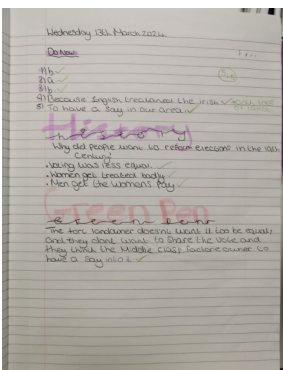 Wednesday 13th March 2024.
Do Now:
1) b
2) a
3) b
4) Because English treatened the irish
5) To have a say in our area.
History
Why did people want to reform elections in the 19th
Century?
• Voting was less equal.
• Women get treated badly
• Men get the womens pay
Green Pen
The tory landowner doesnt want it too be equal,
and they dont want to share the vote and
they think the Middle class factorie owner to
have a say into it